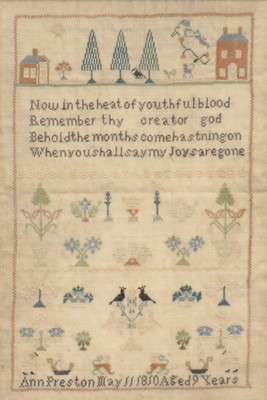 Now in the heat of youthful blood
Remember thy creator god
Behold the months come hastning on
When you shall say my Joys are gone
Ann Preston May 11 1810 Aged 9 Years